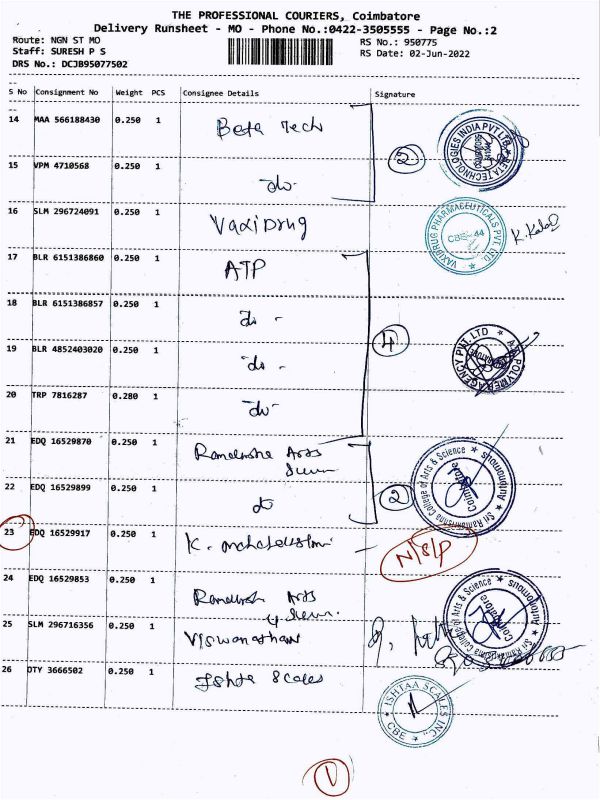 THE PROFESSIONAL COURIERS, Coimbatore
Delivery Runsheet - MO - Phone No.:0422-3505555 - Page No.:2
Route: NGN ST MO RS No.: 950775
Staff: SURESH P S RS Date: 02-Jun-2022
DRS No.: DCJB95077502
S No Consignment No Weight PCS Consignee Details Signature
14 MAA 566188430 0.250 1 Beta Tech
BETA TECHNOLOGIES INDIA PVT. LTD.
2
15 VPM 4710568 0.250 1 do
16 SLM 296724091 0.250 1 Vaxidrug
VAXIDRUG PHARMACEUTICALS PVT. LTD.
CBE-44
17 BLR 6151386860 0.250 1 ATP
18 BLR 6151386857 0.250 1 do -
4
19 BLR 4852403020 0.250 1 do -
POLYMER AGENCY PVT. LTD
20 TRP 7816287 0.280 1 do
21 EDQ 16529870 0.250 1 Arts
Sri Ramakrishna College of Arts & Science
Autonomous
Coimbatore
22 EDQ 16529899 0.250 1 do
2
23 EDQ 16529917 0.250 1 K.
N/S/P
24 EDQ 16529853 0.250 1 Arts
Sri Ramakrishna College of Arts & Science
Autonomous
Coimbatore
25 SLM 296716356 0.250 1 Viswanathan
26 DTY 3666502 0.250 1 Ishta Scales
ISHTAA SCALES INC.,
CBE
1